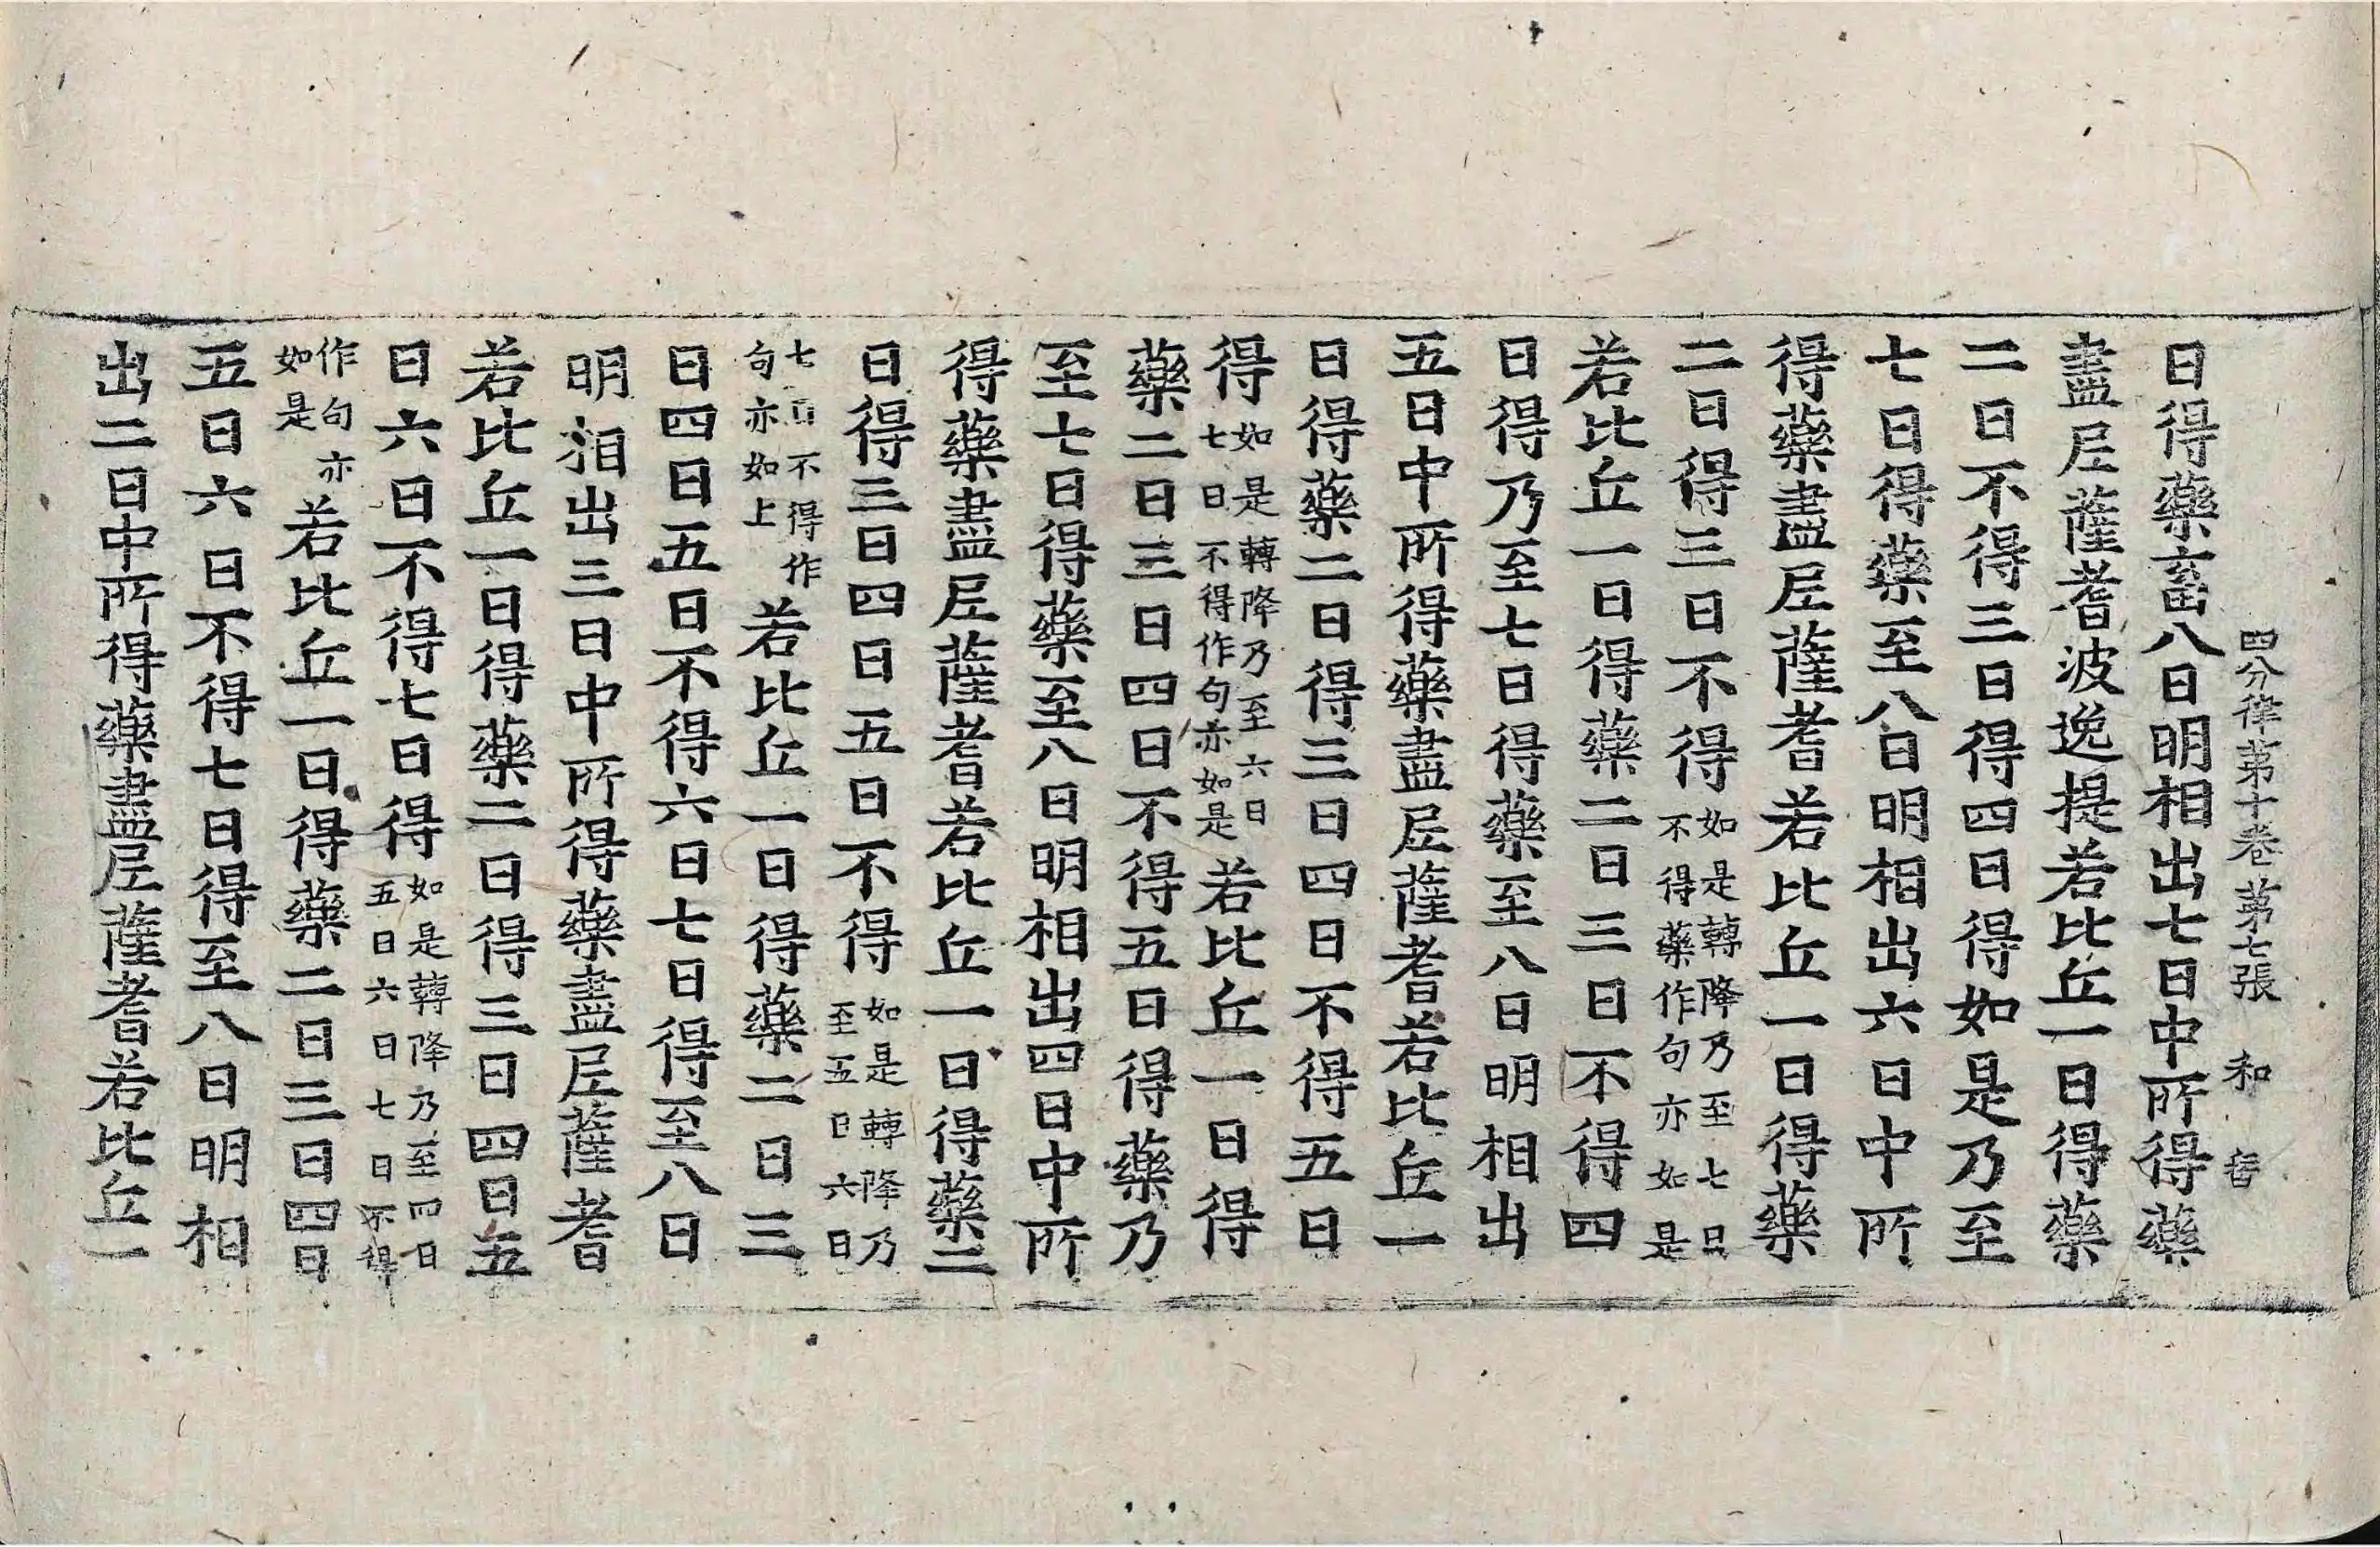 四分律第十卷 第七張 和
日得藥畜八日明相出七日中所得藥
盡尼薩耆波逸提若比丘一日得藥
二日不得三日得四日得如是乃至
七日得藥至八日明相出六日中所
得藥盡尼薩耆若比丘一日得藥
二日得三日不得如是轉降乃至七日不得藥作句亦如是
若比丘一日得藥二日三日不得四
日得乃至七日得藥至八日明相出
五日中所得藥盡尼薩耆若比丘一
日得藥二日得三日四日不得五日
得如是轉降乃至六日七日不得作句亦如是若比丘一日得
藥二日三日四日不得五日得藥乃
至七日得藥至八日明相出四日中所
得藥盡尼薩耆若比丘一日得藥二
日得三日四日五日不得如是轉降乃至五日六日
七日不得作句亦如上若比丘一日得藥二日三
日四日五日不得六日七日得至八日
明相出三日中所得藥盡尼薩耆
若比丘一日得藥二日得三日四日五
日六日不得七日得如是轉降乃至四日五日六日七日不得
作句亦如是若比丘一日得藥二日三日四日
五日六日不得七日得至八日明相
出二日中所得藥盡尼薩耆若比丘一